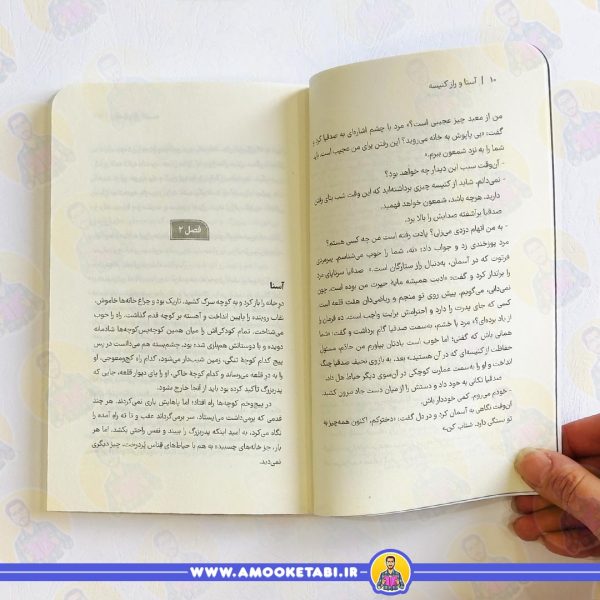 ۱۰ | آسنا و راز کنیسه
من از معبد چیز عجیبی است؟» مرد با چشم اشاره‌ای به صدقیا کرد و
گفت: «بی پاپوش به خانه می‌روید؟ این رفتن برای من عجیب است. باید
شما را به نزد شمعون ببرم.»
- آن‌وقت سبب این دیدار چه خواهد بود؟
- نمی‌دانم. شاید از کنیسه چیزی برداشته‌اید که این وقت شب بنای رفتن
دارید. هرچه باشد، شمعون خواهد فهمید.
صدقیا برآشفته صدایش را بالا برد.
- به من اتهام دزدی می‌زنی؟ یادت رفته است من چه کسی هستم؟
مرد پوزخندی زد و جواب داد: «نه، شما را خوب می‌شناسم. پیرمردی
فرتوت که در آسمان، به‌دنبال راز ستارگان است.» صدقیا سرتاپای مرد
را برانداز کرد و گفت: «دبت همیشه مایهٔ حیرت من بوده است. چون
نمی‌دانی، می‌گویم. پیش روی تو منجم و ریاضی‌دان هفت قلعه است
کسی که جای پدرت را دارد و احترامش برایت واجب است. ده فرمان را
از یاد برده‌ای؟» مرد با خشم، به‌سمت صدقیا گام برداشت و گفت: «شما
همانی باش که گفتی؛ اما خوب است یادتان بیاورم من حاتم، مسئول
حفاظت از کنیسه‌ای که در آن هستید.» بعد، به بازوی نحیف صدقیا چنگ
انداخت و او را به‌سمت عمارت کوچکی در آن‌سوی دیگر حیاط هل داد.
صدقیا تکانی به خود داد و دستش را از میان دست حاد بیرون کشید.
- خودم می‌روم. کمی خوددار باش.
آن‌وقت نگاهی به آسمان کرد و در دل گفت: «دخترکم، اکنون همه‌چیز به
تو بستگی دارد. شتاب کن.»
فصل ۲
آسنا
در خانه را باز کرد و به کوچه سرک کشید. تاریک بود و چراغ خانه‌ها خاموش.
نقاب روبنده را پایین انداخت و آهسته بر کوچه قدم گذاشت. راه را خوب
می‌شناخت. تمام کودکی‌اش را میان همین کوچه‌پس‌کوچه‌ها شادمانه
دویده و با دوستانش هم‌بازی شده بود. چشم‌بسته هم می‌دانست در پس
پیچ کدام کوچهٔ تنگی، زمین شیب‌دار می‌شود، کدام راه کج‌ومعوجی، او
را به در قلعه می‌رساند و کدام کوچهٔ خاکی، او را پای دیوار قلعه، جایی که
پدربزرگ تأکید کرده بود باید از آنجا خارج بشود.
در پیچ‌وخم کوچه‌ها راه افتاد؛ اما پاهایش یاری نمی‌کردند. هر چند
قدمی که برمی‌داشت می‌ایستاد، سر برمی‌گرداند عقب و تا ته راه آمده را
نگاه می‌کرد، به امید اینکه پدربزرگ را ببیند و نفس راحتی بکشد. اما هر
بار، جز خانه‌های چسبیده به هم با حیاط‌های قِناس پُردرخت، چیز دیگری
نمی‌دید.
WWW.AMOOKETABI.IR